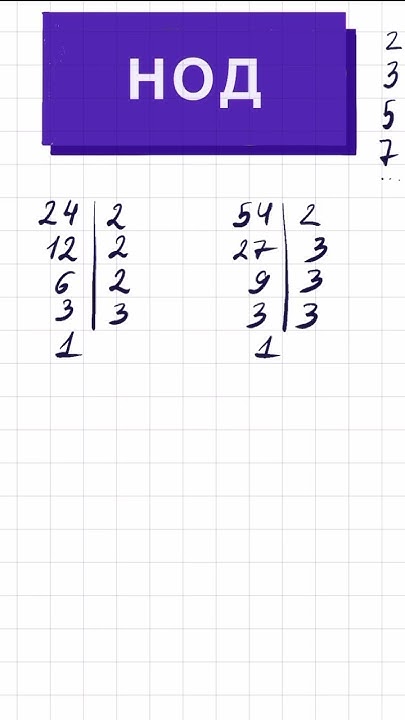 НОД
2
3
5
7
...
24 | 2
12 | 2
6 | 2
3 | 3
1
54 | 2
27 | 3
9 | 3
3 | 3
1